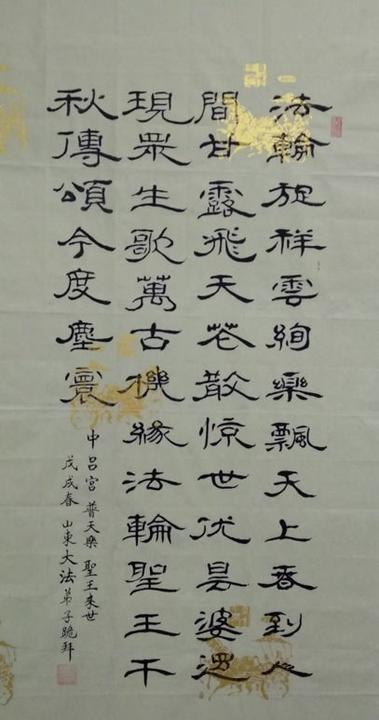 法輪旋祥雲絢樂飄天上香到人
間甘露飛天花散惊世优昙婆逻
現眾生歌萬古機緣法輪聖王千
秋傳頌今度塵寰
中吕宫 普天樂 聖王来世
戊戌春 山東大法弟子跪拜